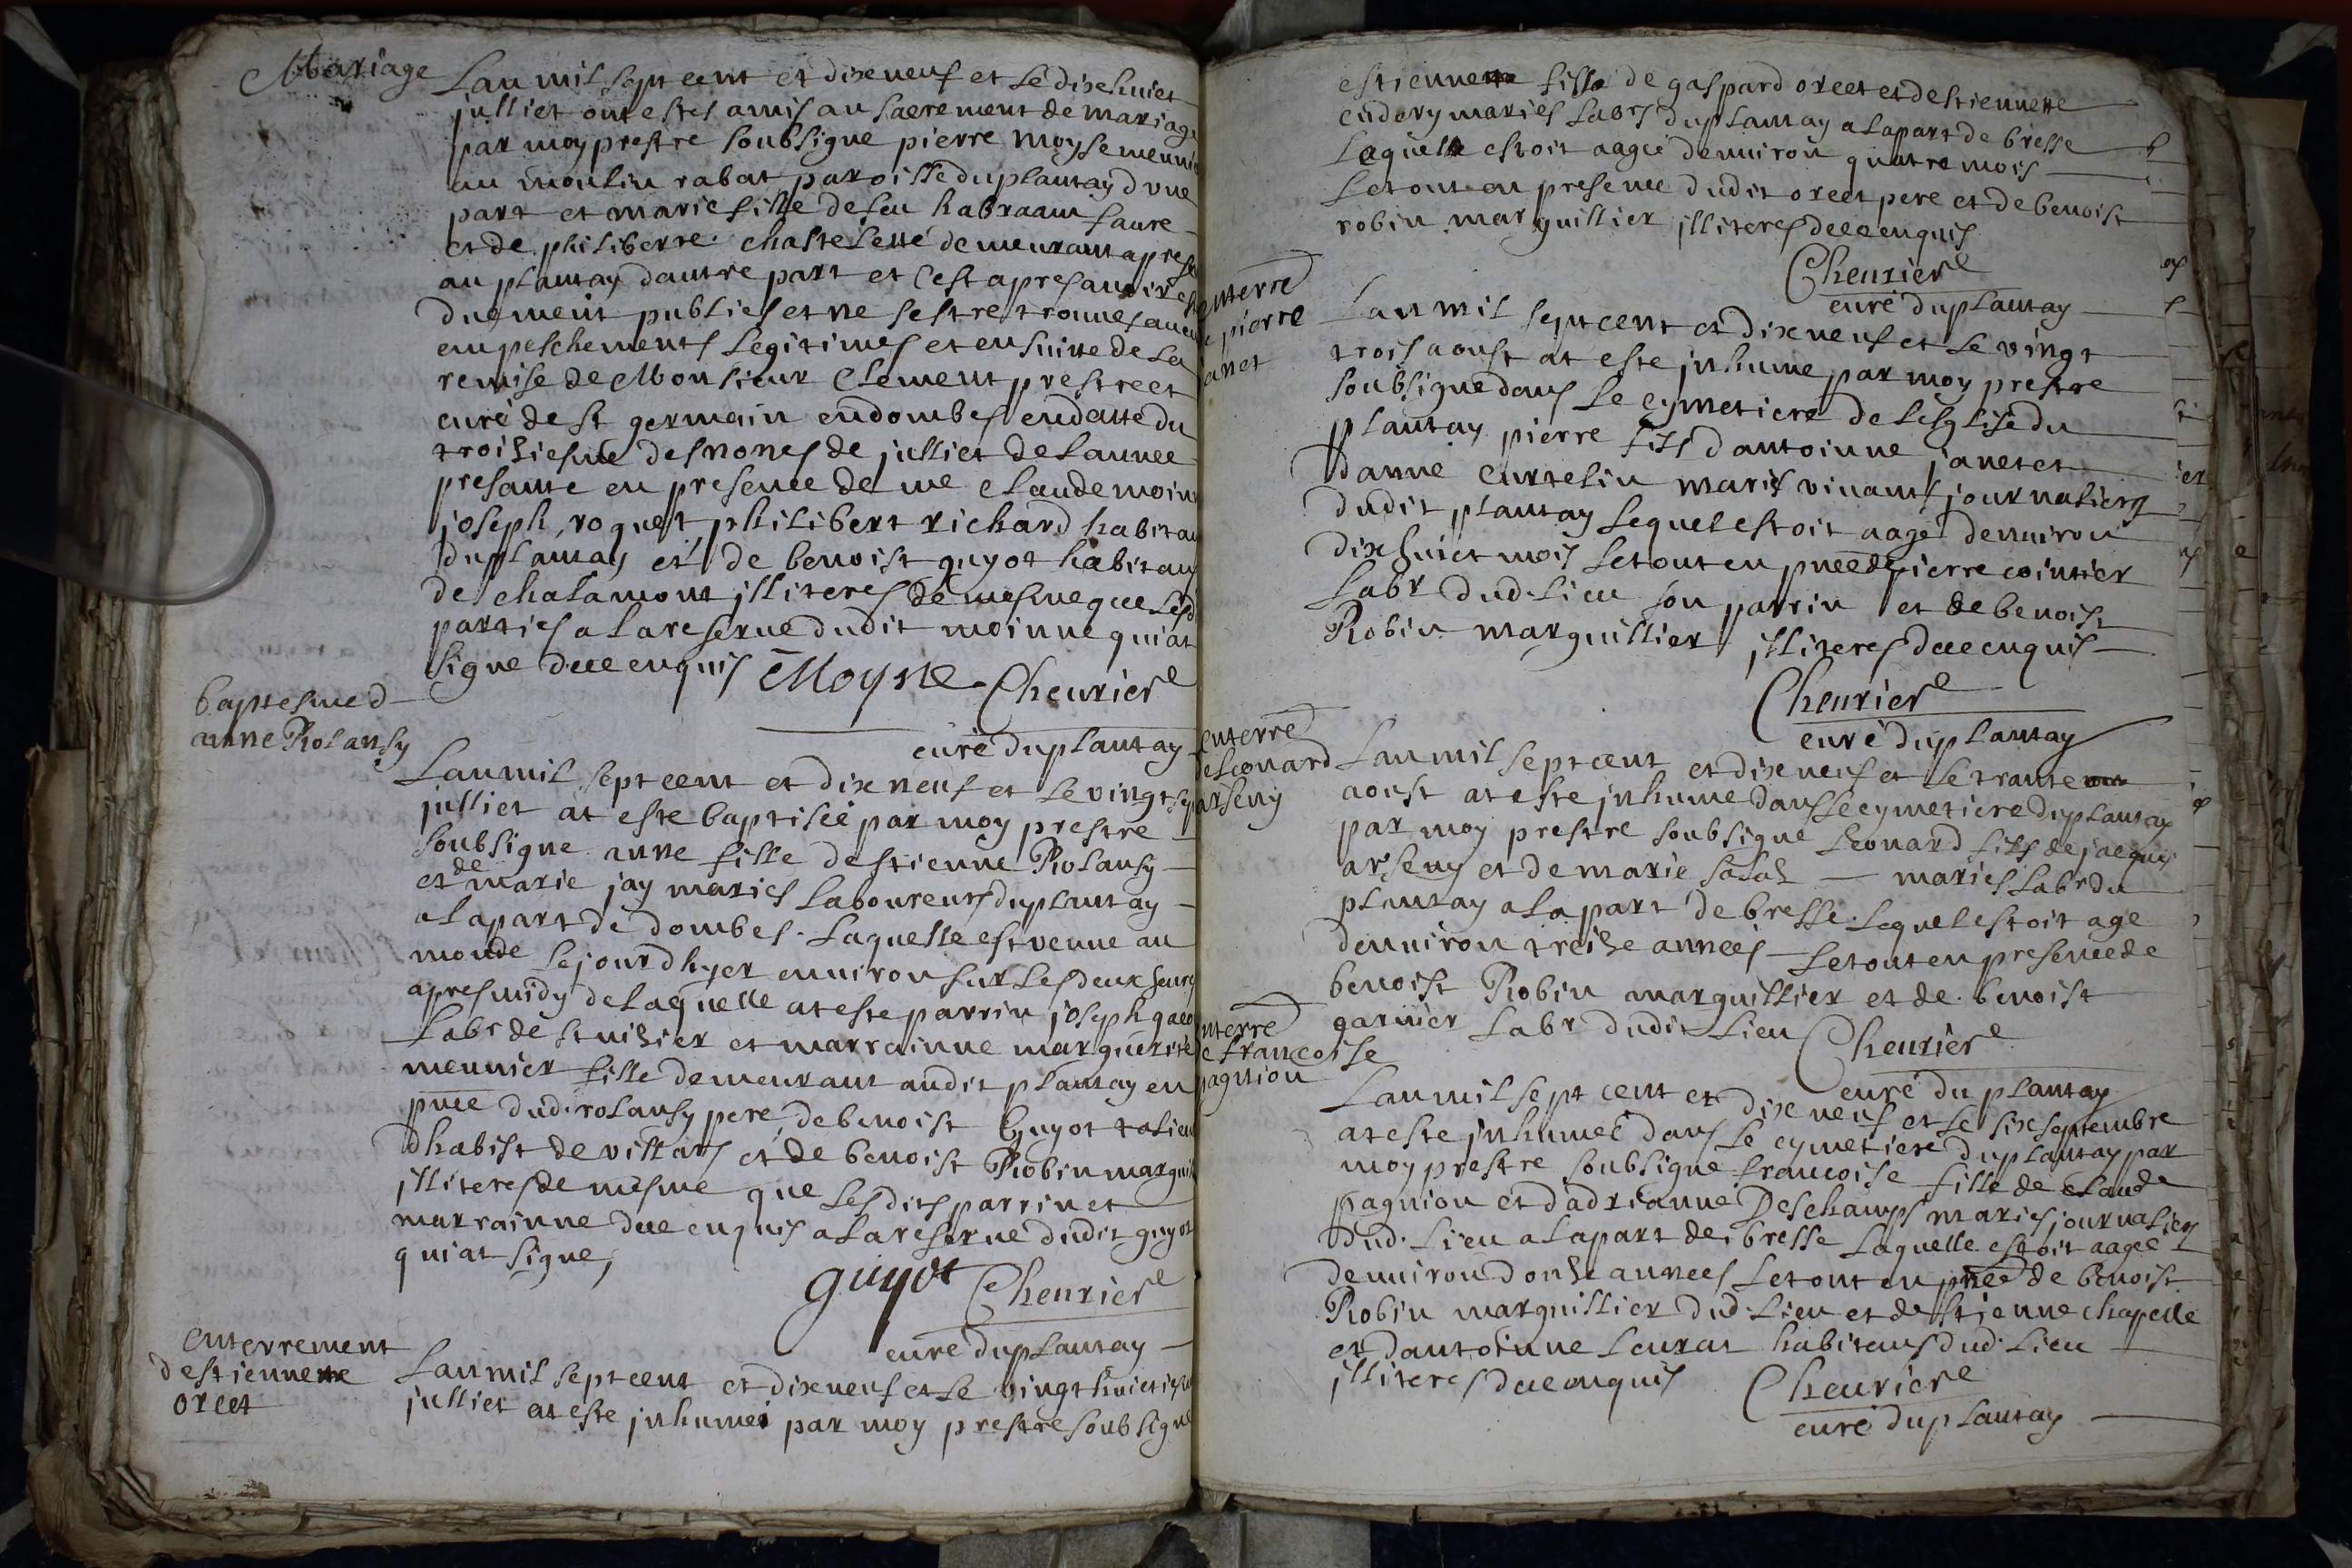 Mariage
Lan mil sept cent et dixneuf et le dixhuict
julliet ont estes amis au sacrement de mariage
par moy prestre soubsigne pierre moyse meunie
au moulin rabat paroisse du plantay dvne
part et marie fille de feu habraam faure
et de philiberte chastelette demeurant apres
au plantay dautre part et cest apres auoir estes
duement publies et ne sestre trouues aucu
empeschements legitimes et en suitte de la
remise de Monsieur Clement prestre et
curé de st germain en dombes en datte du
troisiesme des nones de julliet de lannee
presante en presence de me claude moinne
joseph roquet philibert richard habitan
du plantay et de benoist guyot habitan
de chalamont jlliteres de mesme que lesd
parties a la reserue dudit moinne qui at
signe dece enquis Moyne Cheurier
curé du plantay
baptesme d
anne Rolansy
Lan mil sept cent et dixneuf et le vingtsep
julliet at este baptisée par moy prestre
soubsigne anne fille destienne Rolansy
et de marie jay maries laboureurs du plantay
a la part de dombes. laquelle est venue au
monde le jour dhyer enuiron sur les deux heures
apres midy de laquelle at este parrin joseph
labr de st nisier et marrainne marguerite
meunier fille demeurant audit plantay en
pnce dud. rolansy pere, de benoist Guyot
dhabist de villars et de benoist Robin marguil
jlliteres de mesme que lesdits parrin et
marrainne dece enquis a la reserue dudit guyot
qui at signe,
guyot Cheurier
curé du plantay
Enterrement
destiennette
orcet
Lan mil sept cent et dixneuf et le vingthuictiesme
julliet at este jnhumeé par moy prestre soubsigne
estiennette fille de gaspard orcet et destiennette
maries labrs du plantay a la part de bresse
Laquelle estoit aagée denuiron quatre mois
Le tout en presence dudit orcet pere et de benoist
robin marguillier jlliteres dece enquis
Cheurier
curé du plantay
enterre
pierre
janet
Lan mil sept cent et dixneuf et le vingt
trois aoust at este jnhume par moy prestre
soubsigne dans le cymetiere de lesglise du
plantay pierre fils dantoinne janet et
danne curtelin maries viuants journaliers
dudit plantay lequel estoit aagé denuiron
dixhuict mois le tout en pnce de pierre cointier
labr dud. lieu son parrin et de benoist
Robin marguillier jlliteres dece enquis
Cheurier
curé du plantay
enterre
de Leonard
arseny
Lan mil sept cent et dixneuf et le trante
aoust at este jnhume dans le cymetiere du plantay
par moy prestre soubsigne Leonard fils de jacques
arseny et de marie salas maries labrs du
plantay a la part de bresse. lequel estoit age
denuiron treize annees Le tout en presence de
benoist Robin marguillier et de benoist
garnier labr dudit lieu Cheurier
curé du plantay
enterre
de francoise
pagnion
Lan mil sept cent et dixneuf et le six septembre
at este jnhumeé dans le cymetiere du plantay par
moy prestre soubsigne francoise fille de claude
pagnion et dadrianne Deschamps maries journaliers
dud. lieu a la part de bresse laquelle estoit aageé
denuiron donze annees le tout en pnce de benoist
Robin marguillier dud. lieu et destienne chapelle
et dantoinne leurat habitans dud. lieu
jlliteres dece enquis Cheurier
curé du plantay